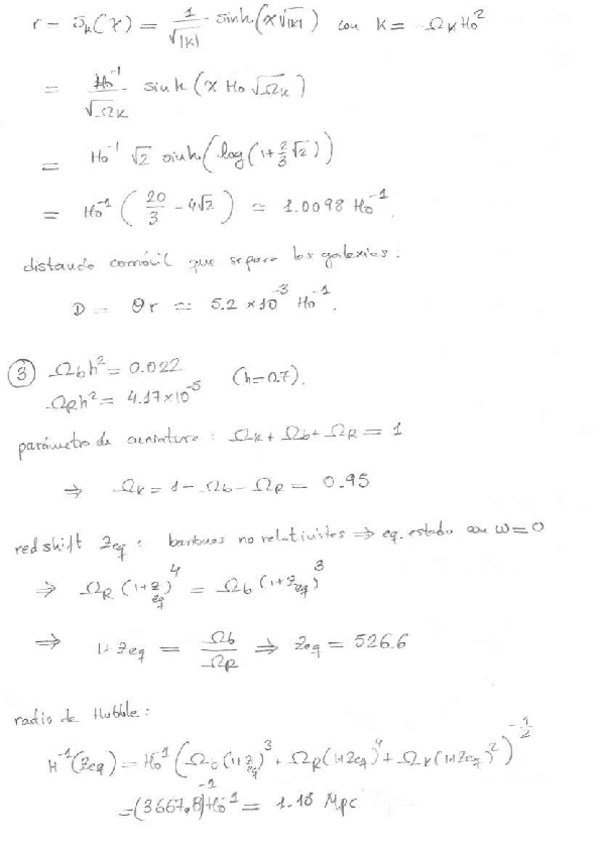 r = S_k(χ) = 1/√|k| · sinh(χ√|k|) con k = -Ω_k H₀²
= H₀⁻¹/√Ω_k · sinh(χ H₀ √Ω_k)
= H₀⁻¹ √2 sinh(log(1+2/3 √2))
= H₀⁻¹ (20/3 - 4√2) ≃ 1.0098 H₀⁻¹.
distancia comóvil que separa las galaxias:
D = θr ≃ 5.2 × 10⁻³ H₀⁻¹.
③ Ω_b h² = 0.022
Ω_R h² = 4.17×10⁻⁵ (h=0.7).
parámetro de curvatura: Ω_k + Ω_b + Ω_R = 1
⇒ Ω_k = 1 - Ω_b - Ω_R = 0.95
redshift z_eq: bariones no relativistas ⇒ eq. estado con ω=0
⇒ Ω_R (1+z_eq)⁴ = Ω_b (1+z_eq)³
⇒ 1+z_eq = Ω_b/Ω_R ⇒ z_eq = 526.6
radio de Hubble:
H⁻¹(z_eq) = H₀⁻¹ (Ω_b(1+z_eq)³ + Ω_R(1+z_eq)⁴ + Ω_k(1+z_eq)²)^(-1/2)
= (3667,8)⁻¹ H₀⁻¹ = 1.18 Mpc